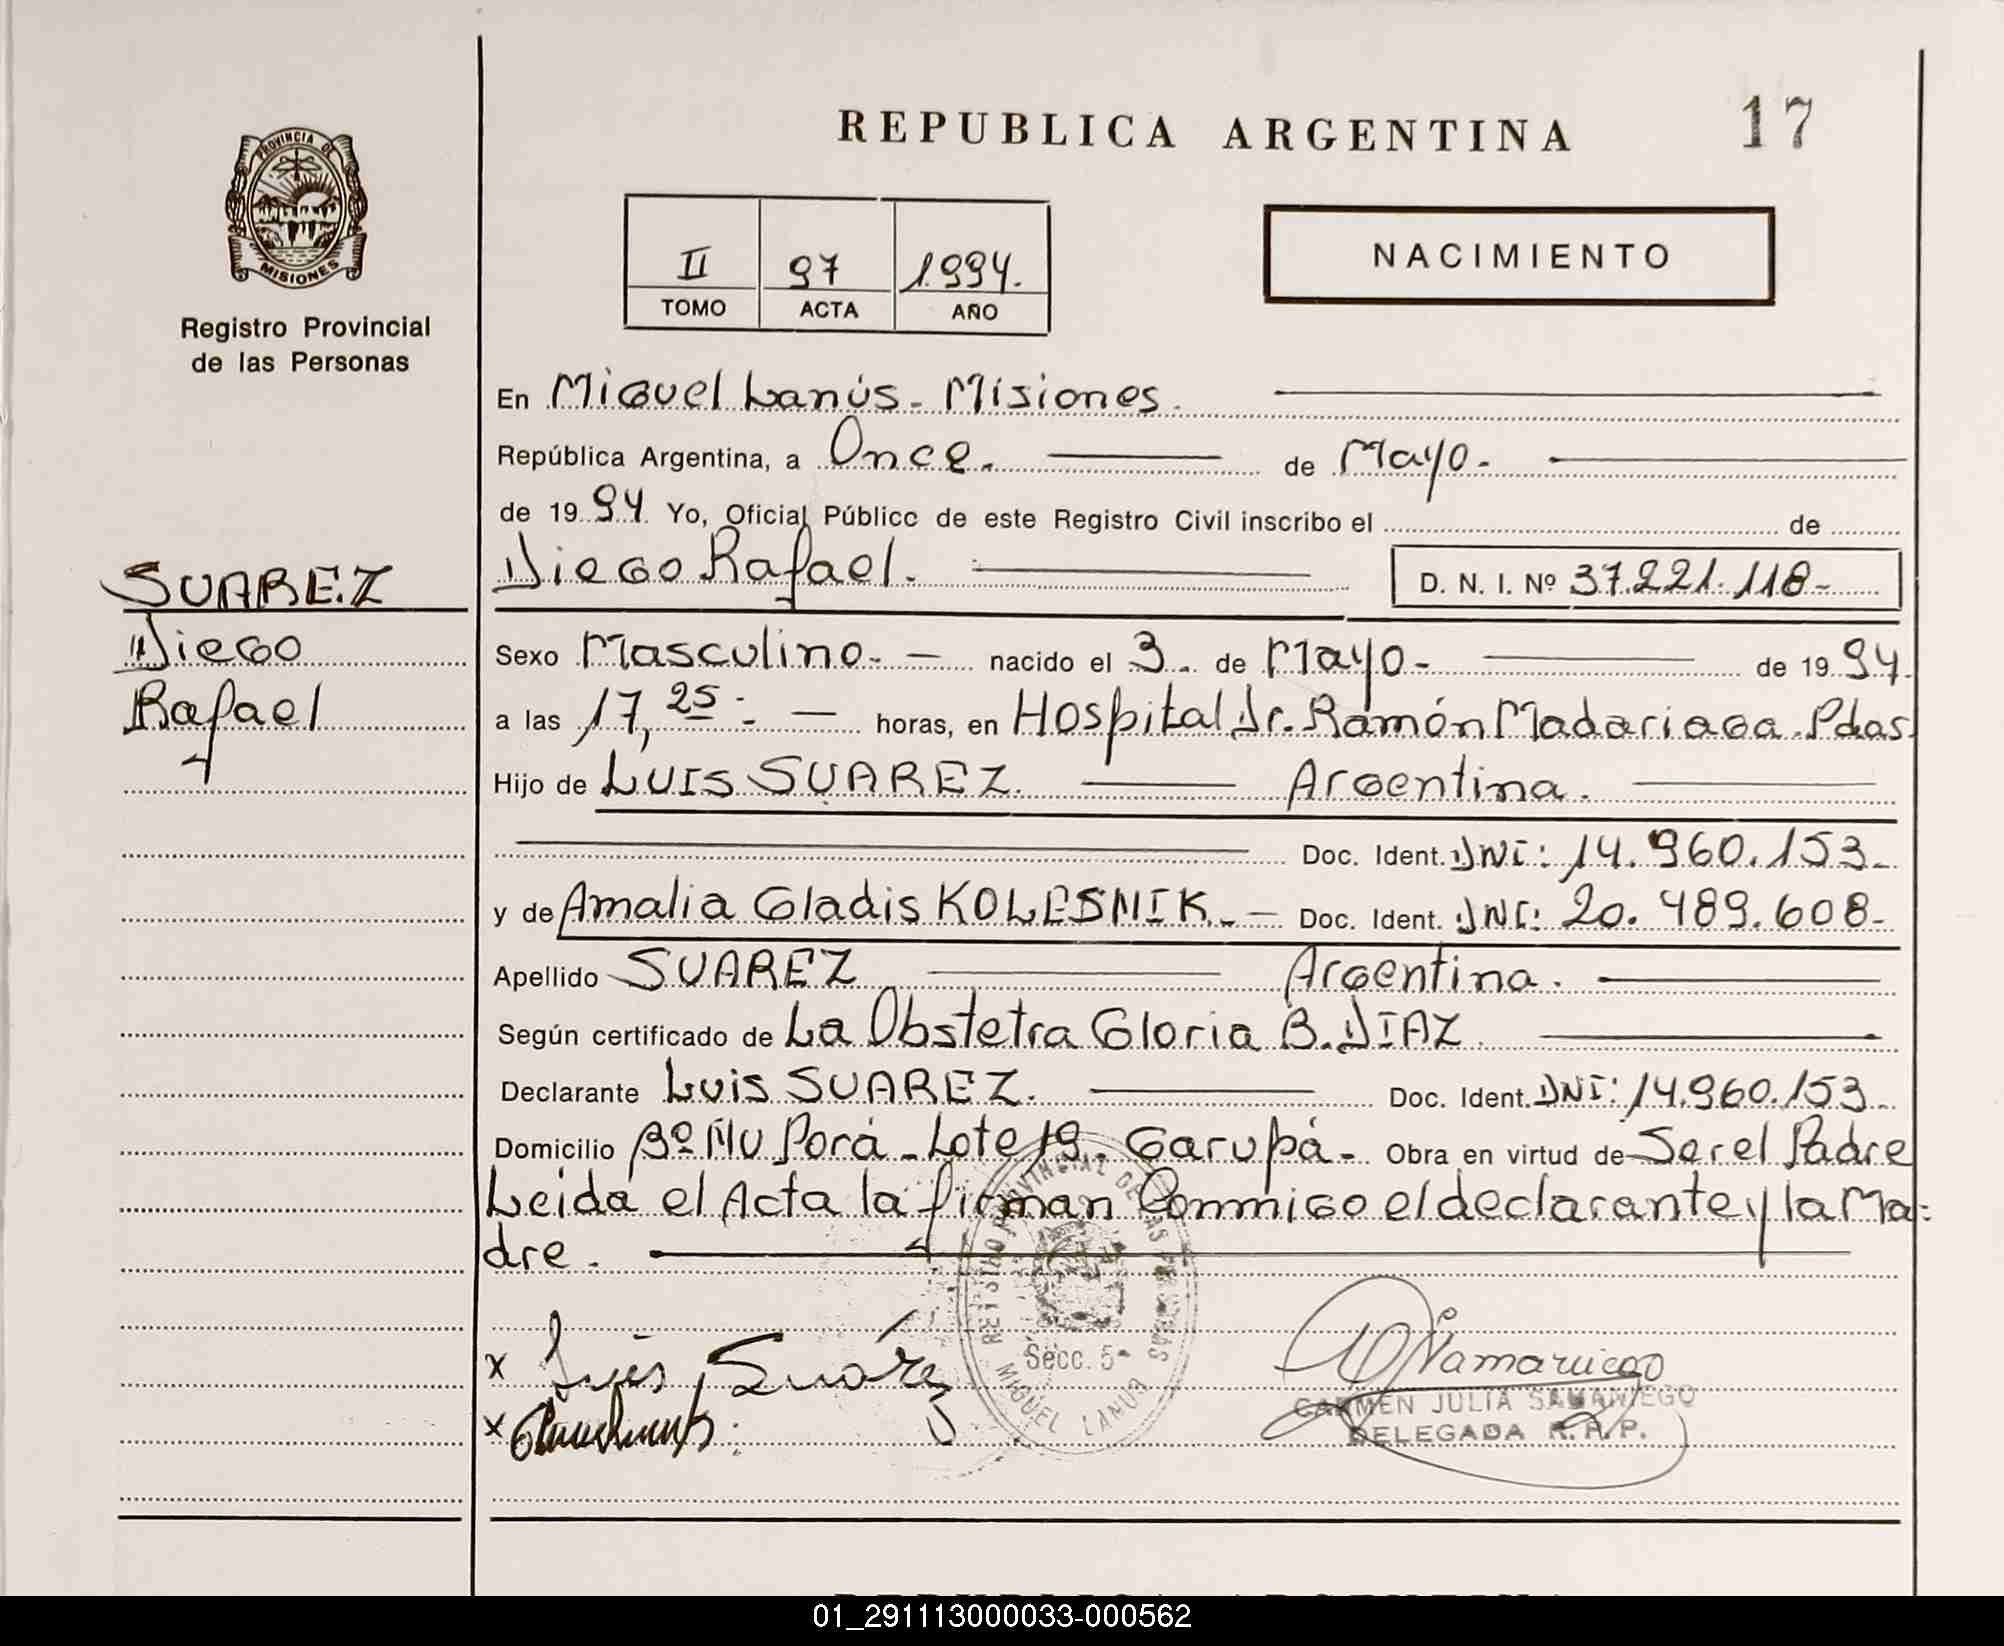 REPUBLICA ARGENTINA
17
PROVINCIA DE
MISIONES
Registro Provincial
de las Personas
II 97 1994.
TOMO ACTA AÑO
NACIMIENTO
En Miguel Lanús - Misiones.
República Argentina, a Once. de Mayo.
de 1994 Yo, Oficial Público de este Registro Civil inscribo el de
Diego Rafael. D. N. I. Nº 37.221.118-
SUAREZ
Diego
Rafael
Sexo Masculino. - nacido el 3. de Mayo - de 1994.
a las 17,25 - horas, en Hospital Dr. Ramón Madariaga. Pdas.
Hijo de LUIS SUAREZ. Argentina.
Doc. Ident. DNI: 14.960.153-
y de Amalia Gladis KOLESNIK. - Doc. Ident. DNI: 20.489.608-
Apellido SUAREZ Argentina.
Según certificado de La Obstetra Gloria B. DIAZ
Declarante Luis SUAREZ. Doc. Ident. DNI: 14.960.153-
Domicilio Bº Ñu Porá - Lote 19 - Garupá - Obra en virtud de Ser el Padre
Leida el Acta la firman Conmigo el declarante y la Ma:
dre.
REGISTRO PROVINCIAL DE LAS PERSONAS
Secc. 5ª
MIGUEL LANUS
x Luis Suárez
x
CARMEN JULIA SAMANIEGO
DELEGADA R.P.P.
01_291113000033-000562